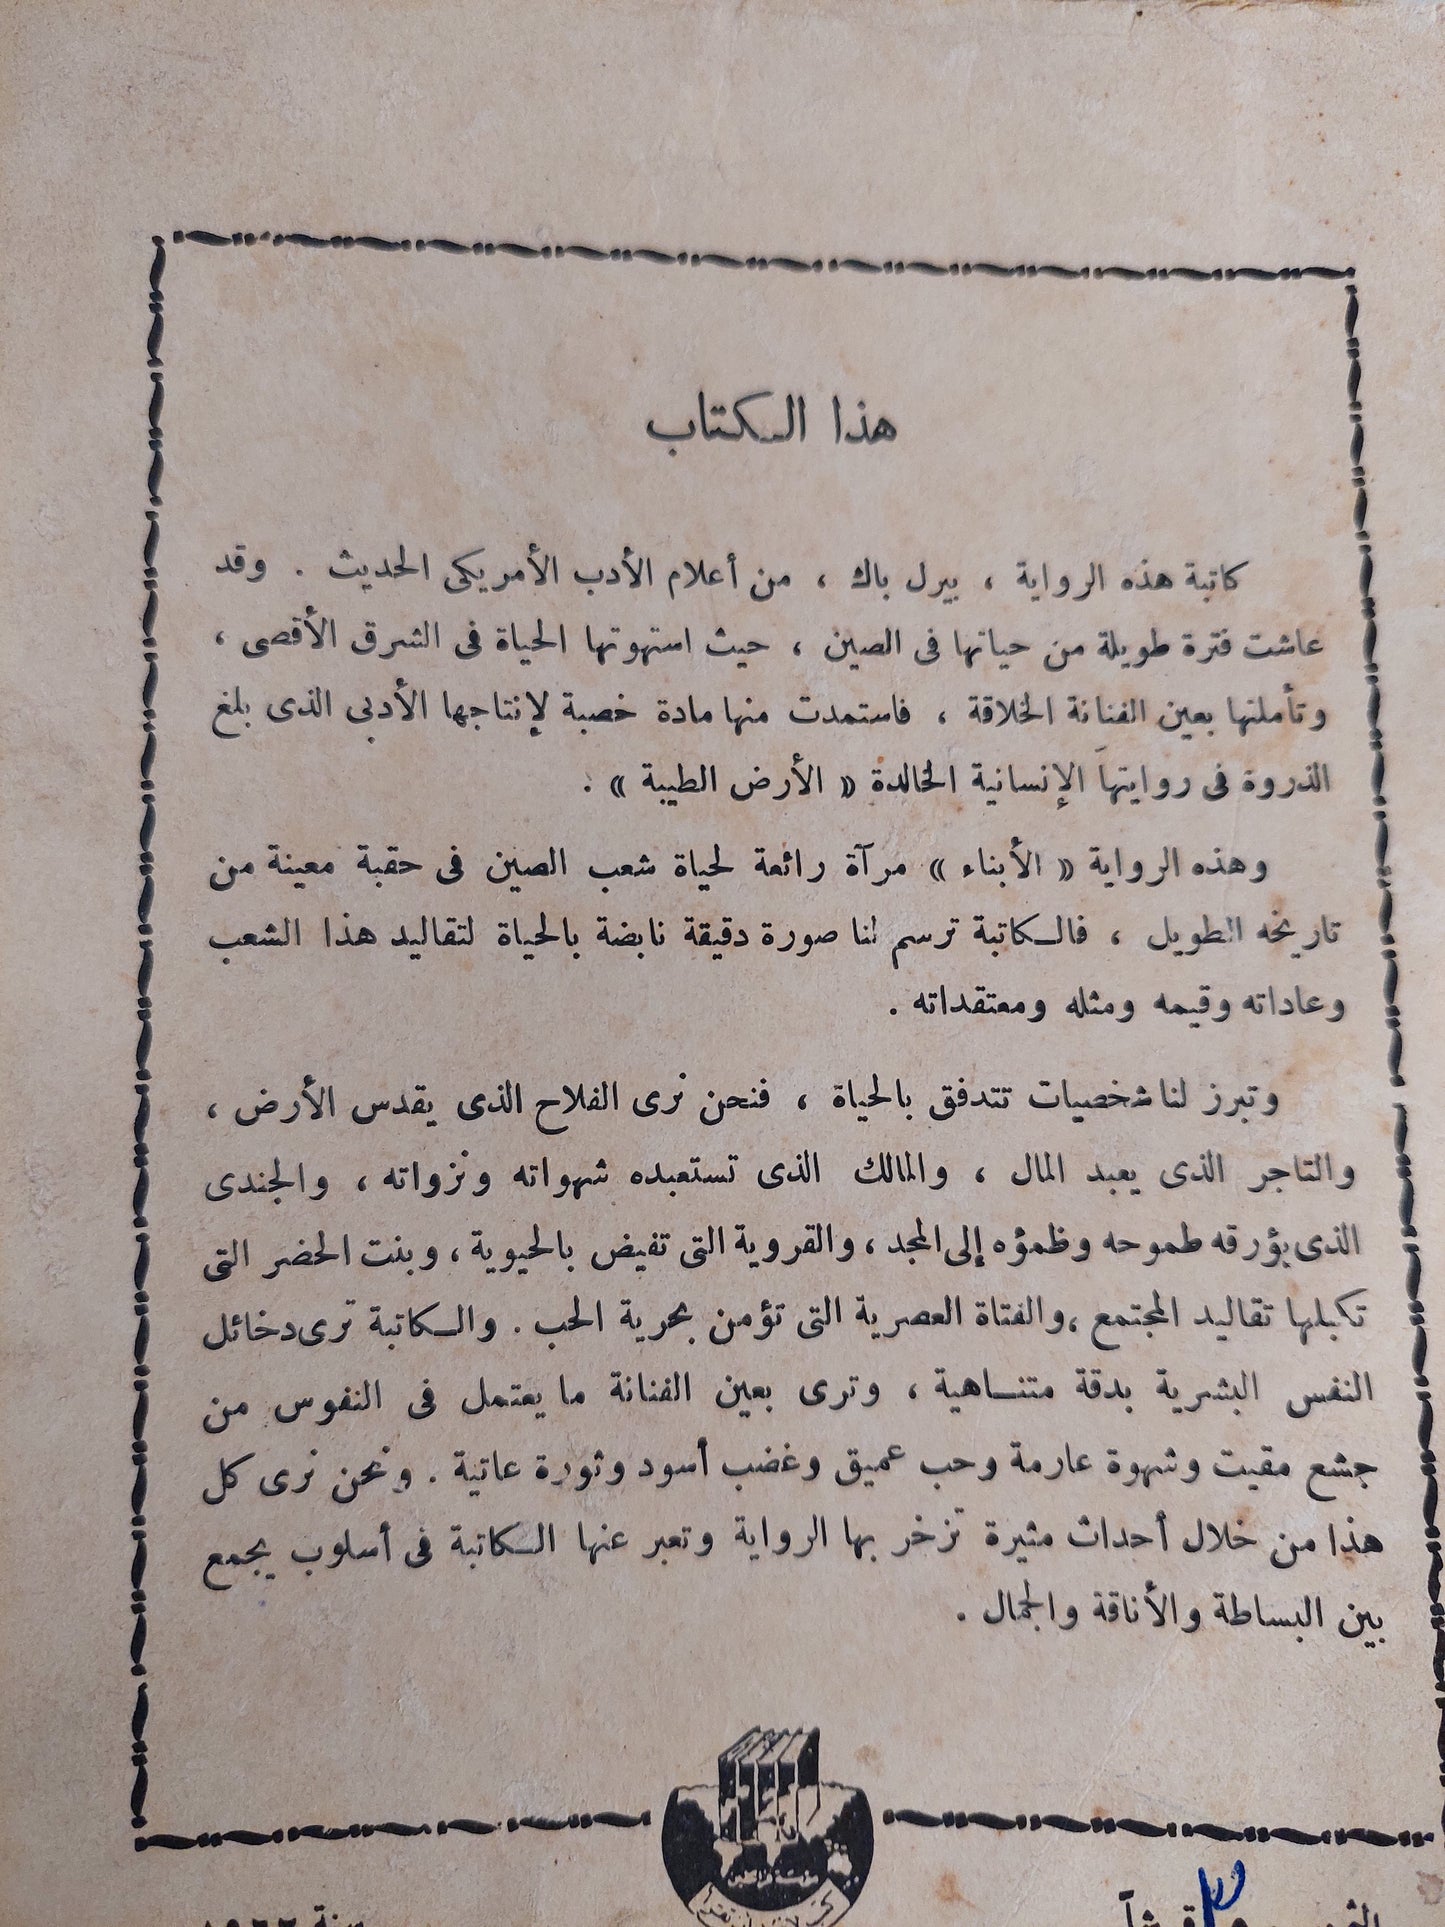 هذا الكتاب
كاتبة هذه الرواية ، بيرل باك ، من أعلام الأدب الأمريكى الحديث . وقد
عاشت فترة طويلة من حياتها فى الصين ، حيث استهوتها الحياة فى الشرق الأقصى ،
وتأملتها بعين الفنانة الخلاقة ، فاستمدت منها مادة خصبة لإنتاجها الأدبى الذى بلغ
الذروة فى روايتها الإنسانية الخالدة « الأرض الطيبة » .
وهذه الرواية « الأبناء » مرآة رائعة لحياة شعب الصين فى حقبة معينة من
تاريخه الطويل ، فالكاتبة ترسم لنا صورة دقيقة نابضة بالحياة لتقاليد هذا الشعب
وعاداته وقيمه ومثله ومعتقداته .
وتبرز لنا شخصيات تتدفق بالحياة ، فنحن نرى الفلاح الذى يقدس الأرض ،
والتاجر الذى يعبد المال ، والمالك الذى تستعبده شهواته ونزواته ، والجندى
الذى يؤرقه طموحه وظمؤه إلى المجد ، والقروية التى تفيض بالحيوية ، وبنت الحضر التى
تكبلها تقاليد المجتمع ، والفتاة العصرية التى تؤمن بحرية الحب . والكاتبة ترى دخائل
النفس البشرية بدقة متناهية ، وترى بعين الفنانة ما يعتمل فى النفوس من
جشع مقيت وشهوة عارمة وحب عميق وغضب أسود وثورة عاتية . ونحن نرى كل
هذا من خلال أحداث مثيرة تزخر بها الرواية وتعبر عنها الكاتبة فى أسلوب يجمع
بين البساطة والأناقة والجمال .